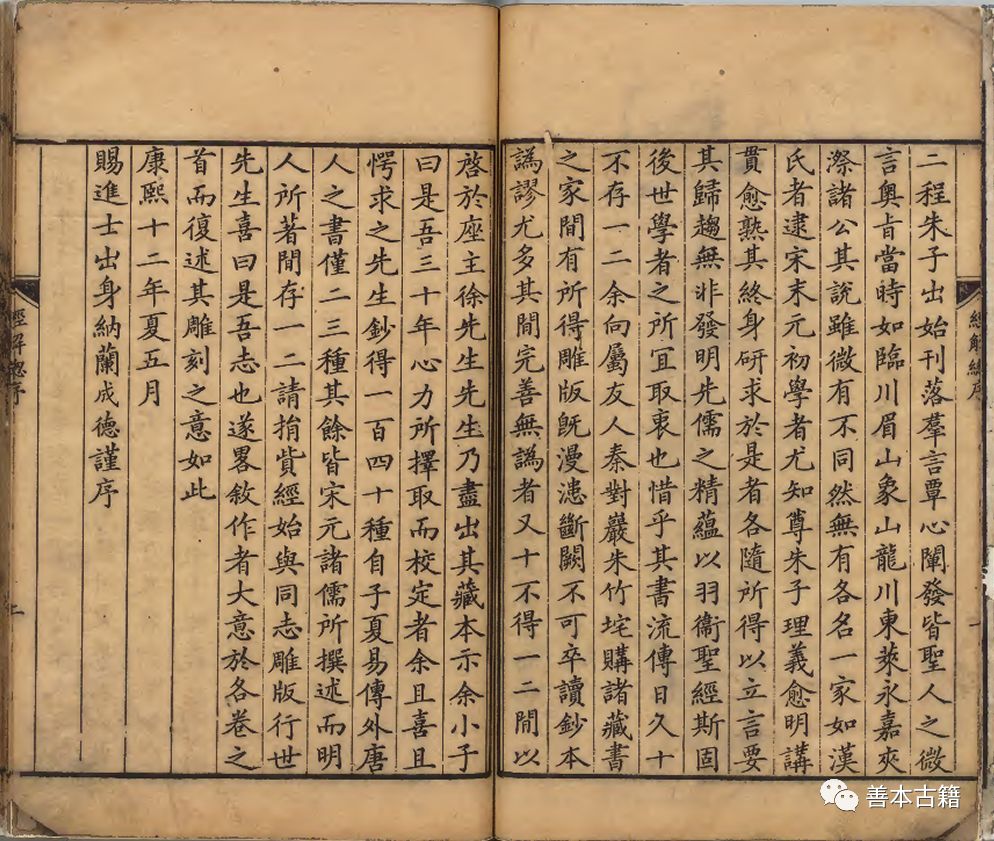 經解總序
二程朱子出始刊落羣言覃心闡發皆聖人之微
言奥㫖當時如臨川眉山象山龍川東萊永嘉夾
漈諸公其說雖微有不同然無有各名一家如漢
氏者逮宋末元初學者尤知尊朱子理義愈明講
貫愈熟其終身研求於是者各隨所得以立言要
其歸趨無非發明先儒之精蘊以羽衞聖經斯固
後世學者之所宜取衷也惜乎其書流傳日久十
不存一二余向屬友人秦對巖朱竹垞購諸藏書
之家間有所得雕版旣漫漶斷闕不可卒讀鈔本
譌謬尤多其間完善無譌者又十不得一二間以
啓於座主徐先生先生乃盡出其藏本示余小子
曰是吾三十年心力所擇取而校定者余且喜且
愕求之先生鈔得一百四十種自子夏易傳外唐
人之書僅二三種其餘皆宋元諸儒所撰述而明
人所著間存一二請捐貲經始與同志雕版行世
先生喜曰是吾志也遂畧敘作者大意於各卷之
首而復述其雕刻之意如此
康熙十二年夏五月
賜進士出身納蘭成德謹序
經解總序
二
善本古籍